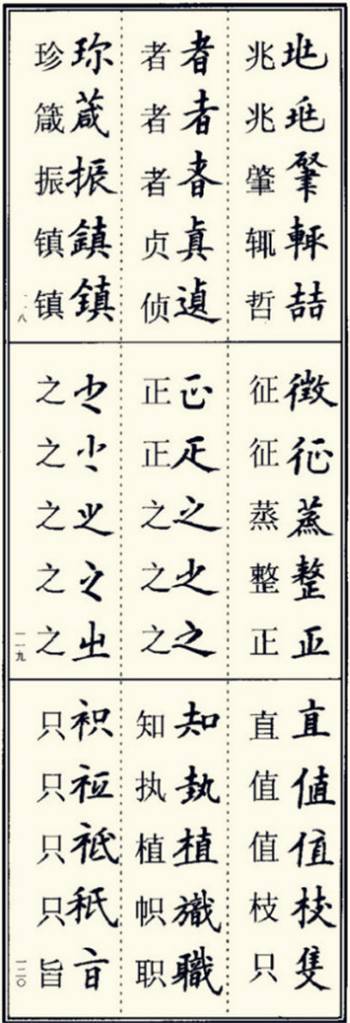 肇輒喆
兆兆肇辄哲
者者眞遉
者者者贞侦
珎葴振鎮鎮
珍箴振镇镇
一一八
徵征蒸整正
征征蒸整正
正疋之之之
正正之之之
之之
之之之之之
一一九
直值值枝隻
直值值枝只
知執植旘職
知执植帜职
祇秖
只只只只旨
一二〇